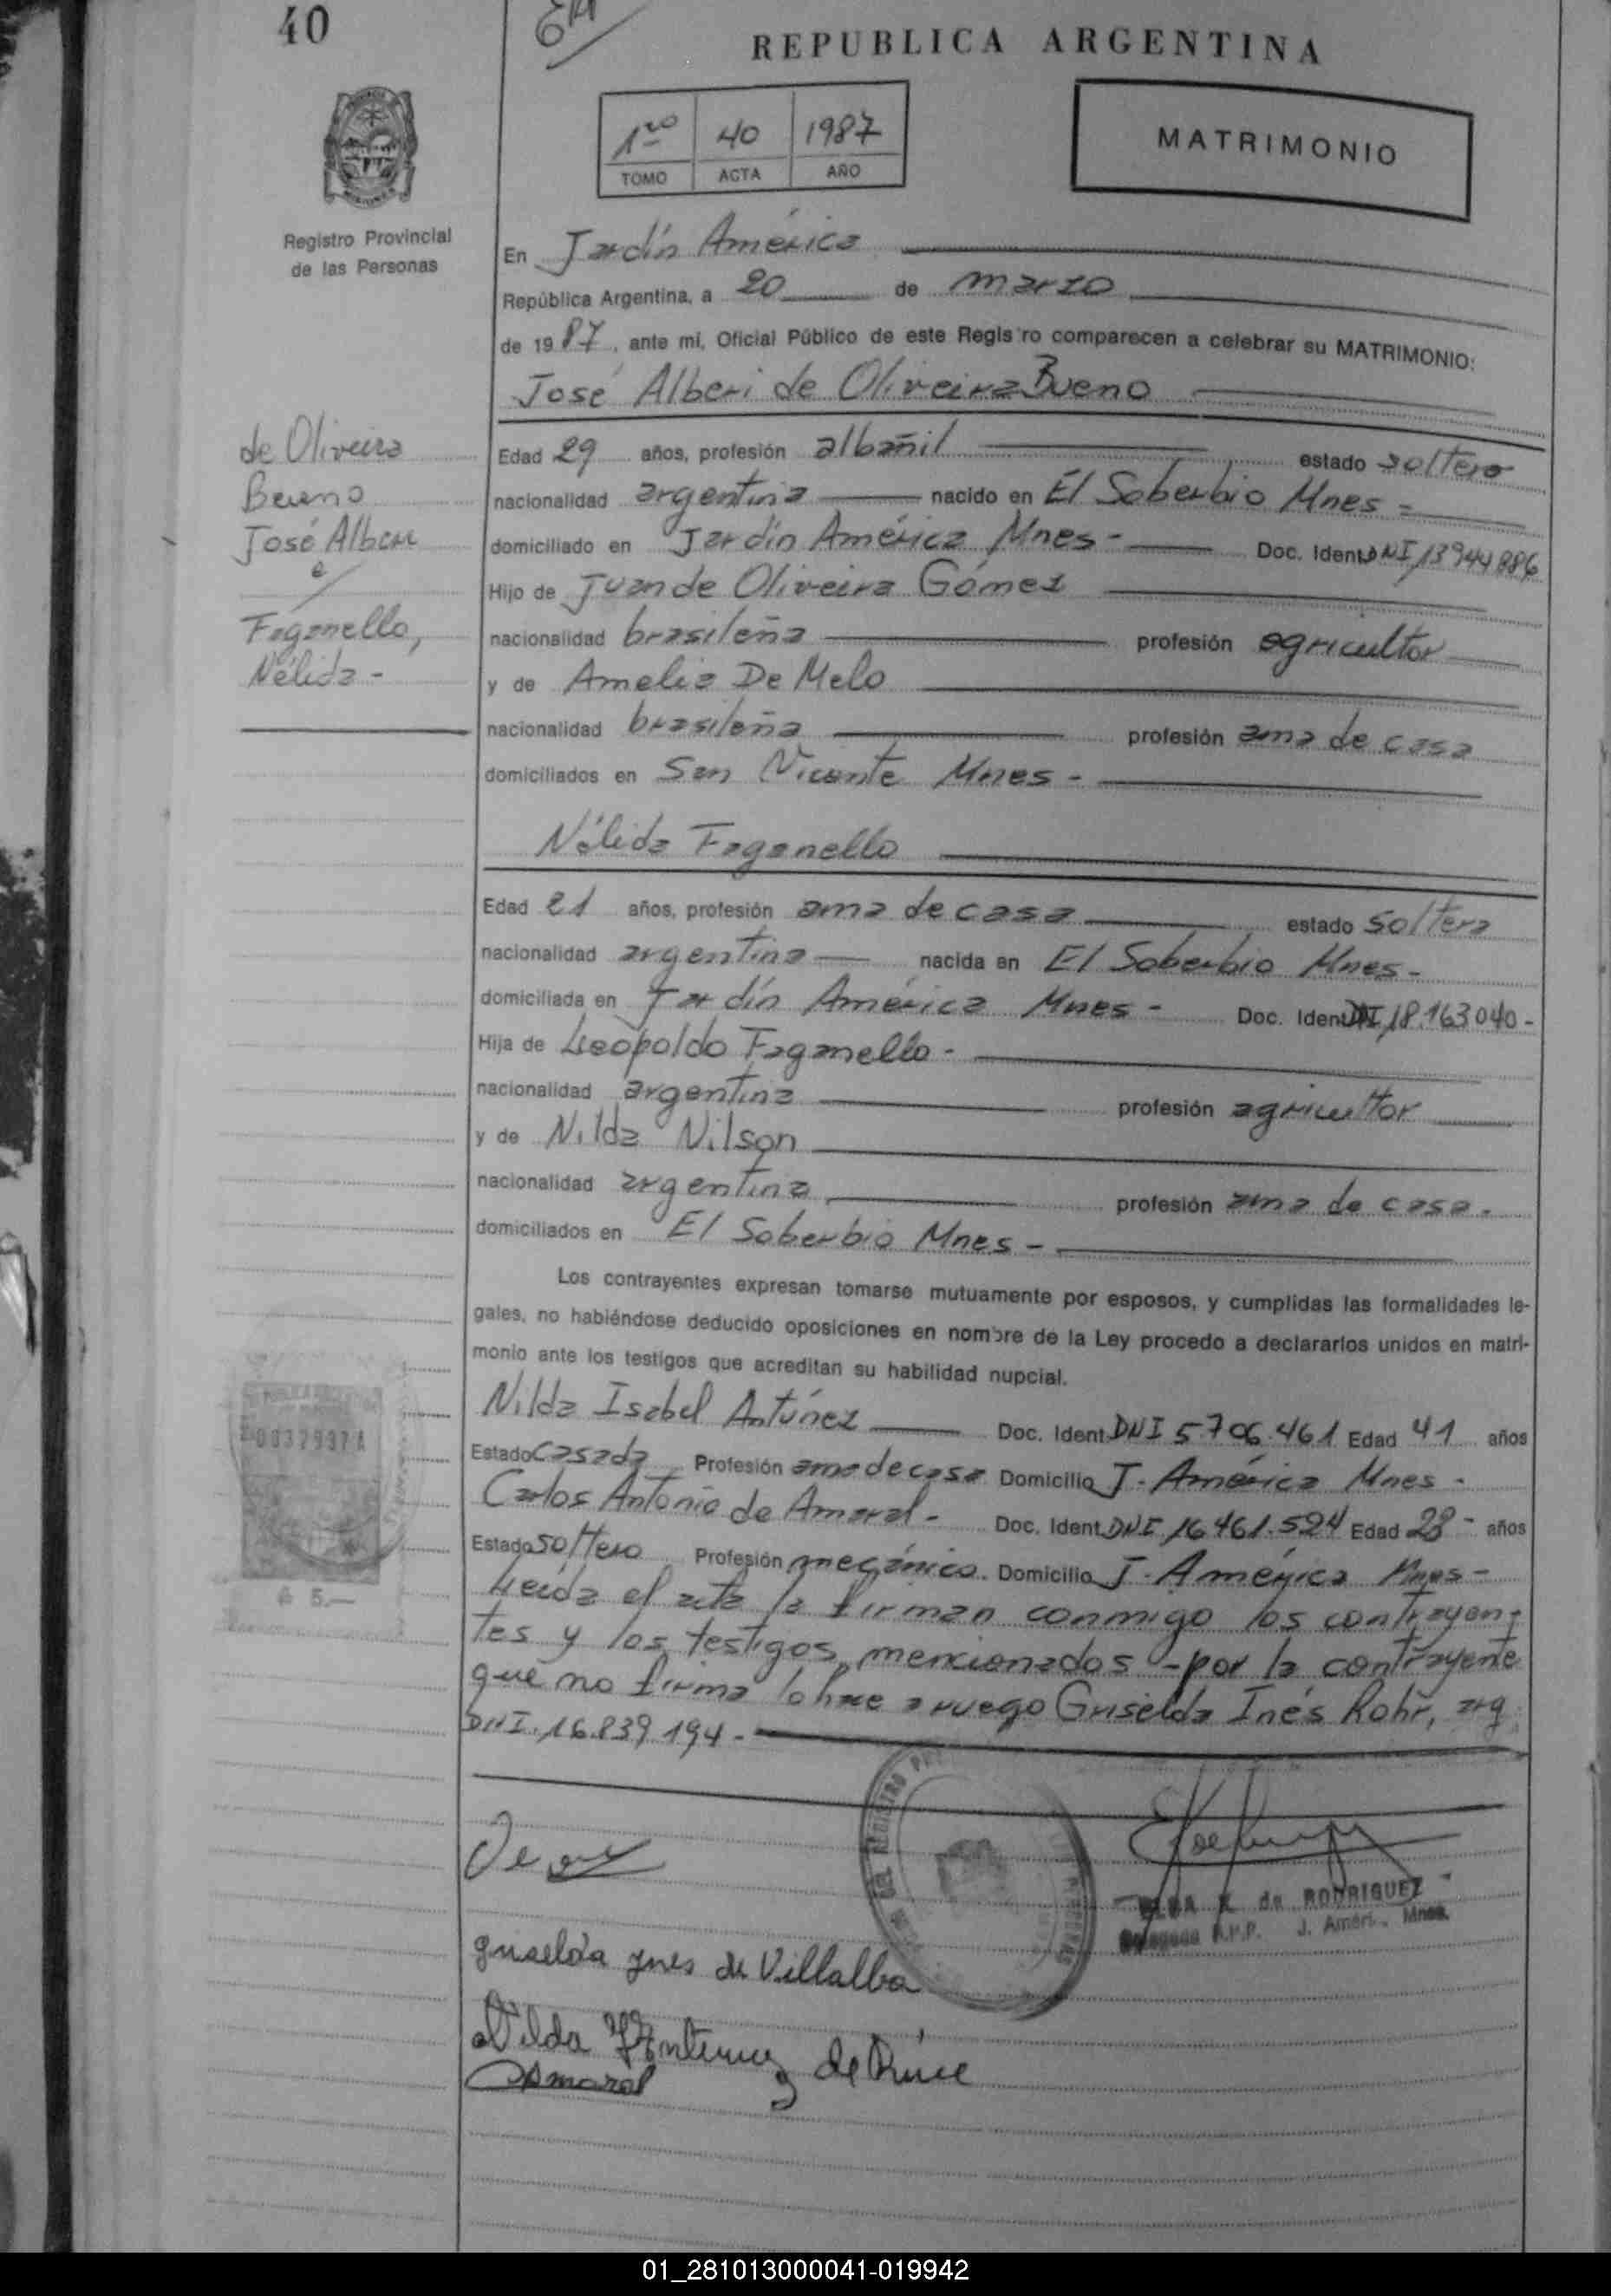 40
REPUBLICA ARGENTINA
1ro 40 1987
TOMO ACTA AÑO
MATRIMONIO
Registro Provincial
de las Personas
En Jardín América
República Argentina, a 20 de marzo
de 1987, ante mi, Oficial Público de este Registro comparecen a celebrar su MATRIMONIO:
José Alberi de Oliveira Bueno
de Oliveira
Bueno
José Alberi
e/
Faganello,
Nélida -
Edad 29 años, profesión albañil estado soltero
nacionalidad argentina nacido en El Soberbio Mnes -
domiciliado en Jardín América Mnes - Doc. Ident. DNI 13944886
Hijo de Juan de Oliveira Gómez
nacionalidad brasileña profesión agricultor
y de Amelia De Melo
nacionalidad brasileña profesión ama de casa
domiciliados en San Vicente Mnes -
Nélida Faganello
Edad 21 años, profesión ama de casa estado soltera
nacionalidad argentina nacida en El Soberbio Mnes -
domiciliada en Jardín América Mnes - Doc. Ident. DNI 18.163040 -
Hija de Leopoldo Faganello -
nacionalidad argentina profesión agricultor
y de Nilda Nilson
nacionalidad argentina profesión ama de casa.
domiciliados en El Soberbio Mnes -
Los contrayentes expresan tomarse mutuamente por esposos, y cumplidas las formalidades le-
gales, no habiéndose deducido oposiciones en nombre de la Ley procedo a declararlos unidos en matri-
monio ante los testigos que acreditan su habilidad nupcial.
Nilda Isabel Antúnez Doc. Ident. DNI 5.706.461 Edad 41 años
Estado casada Profesión ama de casa Domicilio J. América Mnes -
Carlos Antonio de Amaral - Doc. Ident. DNI 16.461.524 Edad 23 - años
Estado soltero Profesión mecánico. Domicilio J. América Mnes -
Leída el acta la firman conmigo los contrayen-
tes y los testigos mencionados - por la contrayente
que no firma lo hace a ruego Griselda Inés Rohr, arg.
DNI. 16.839.194 -
0037997A
₳ 5.—
de RODRIGUEZ
R.P.P. J. Amér. Mnes.
Griselda Ynes de Villalba
Nilda Y Antunez de
Amaral
01_281013000041-019942